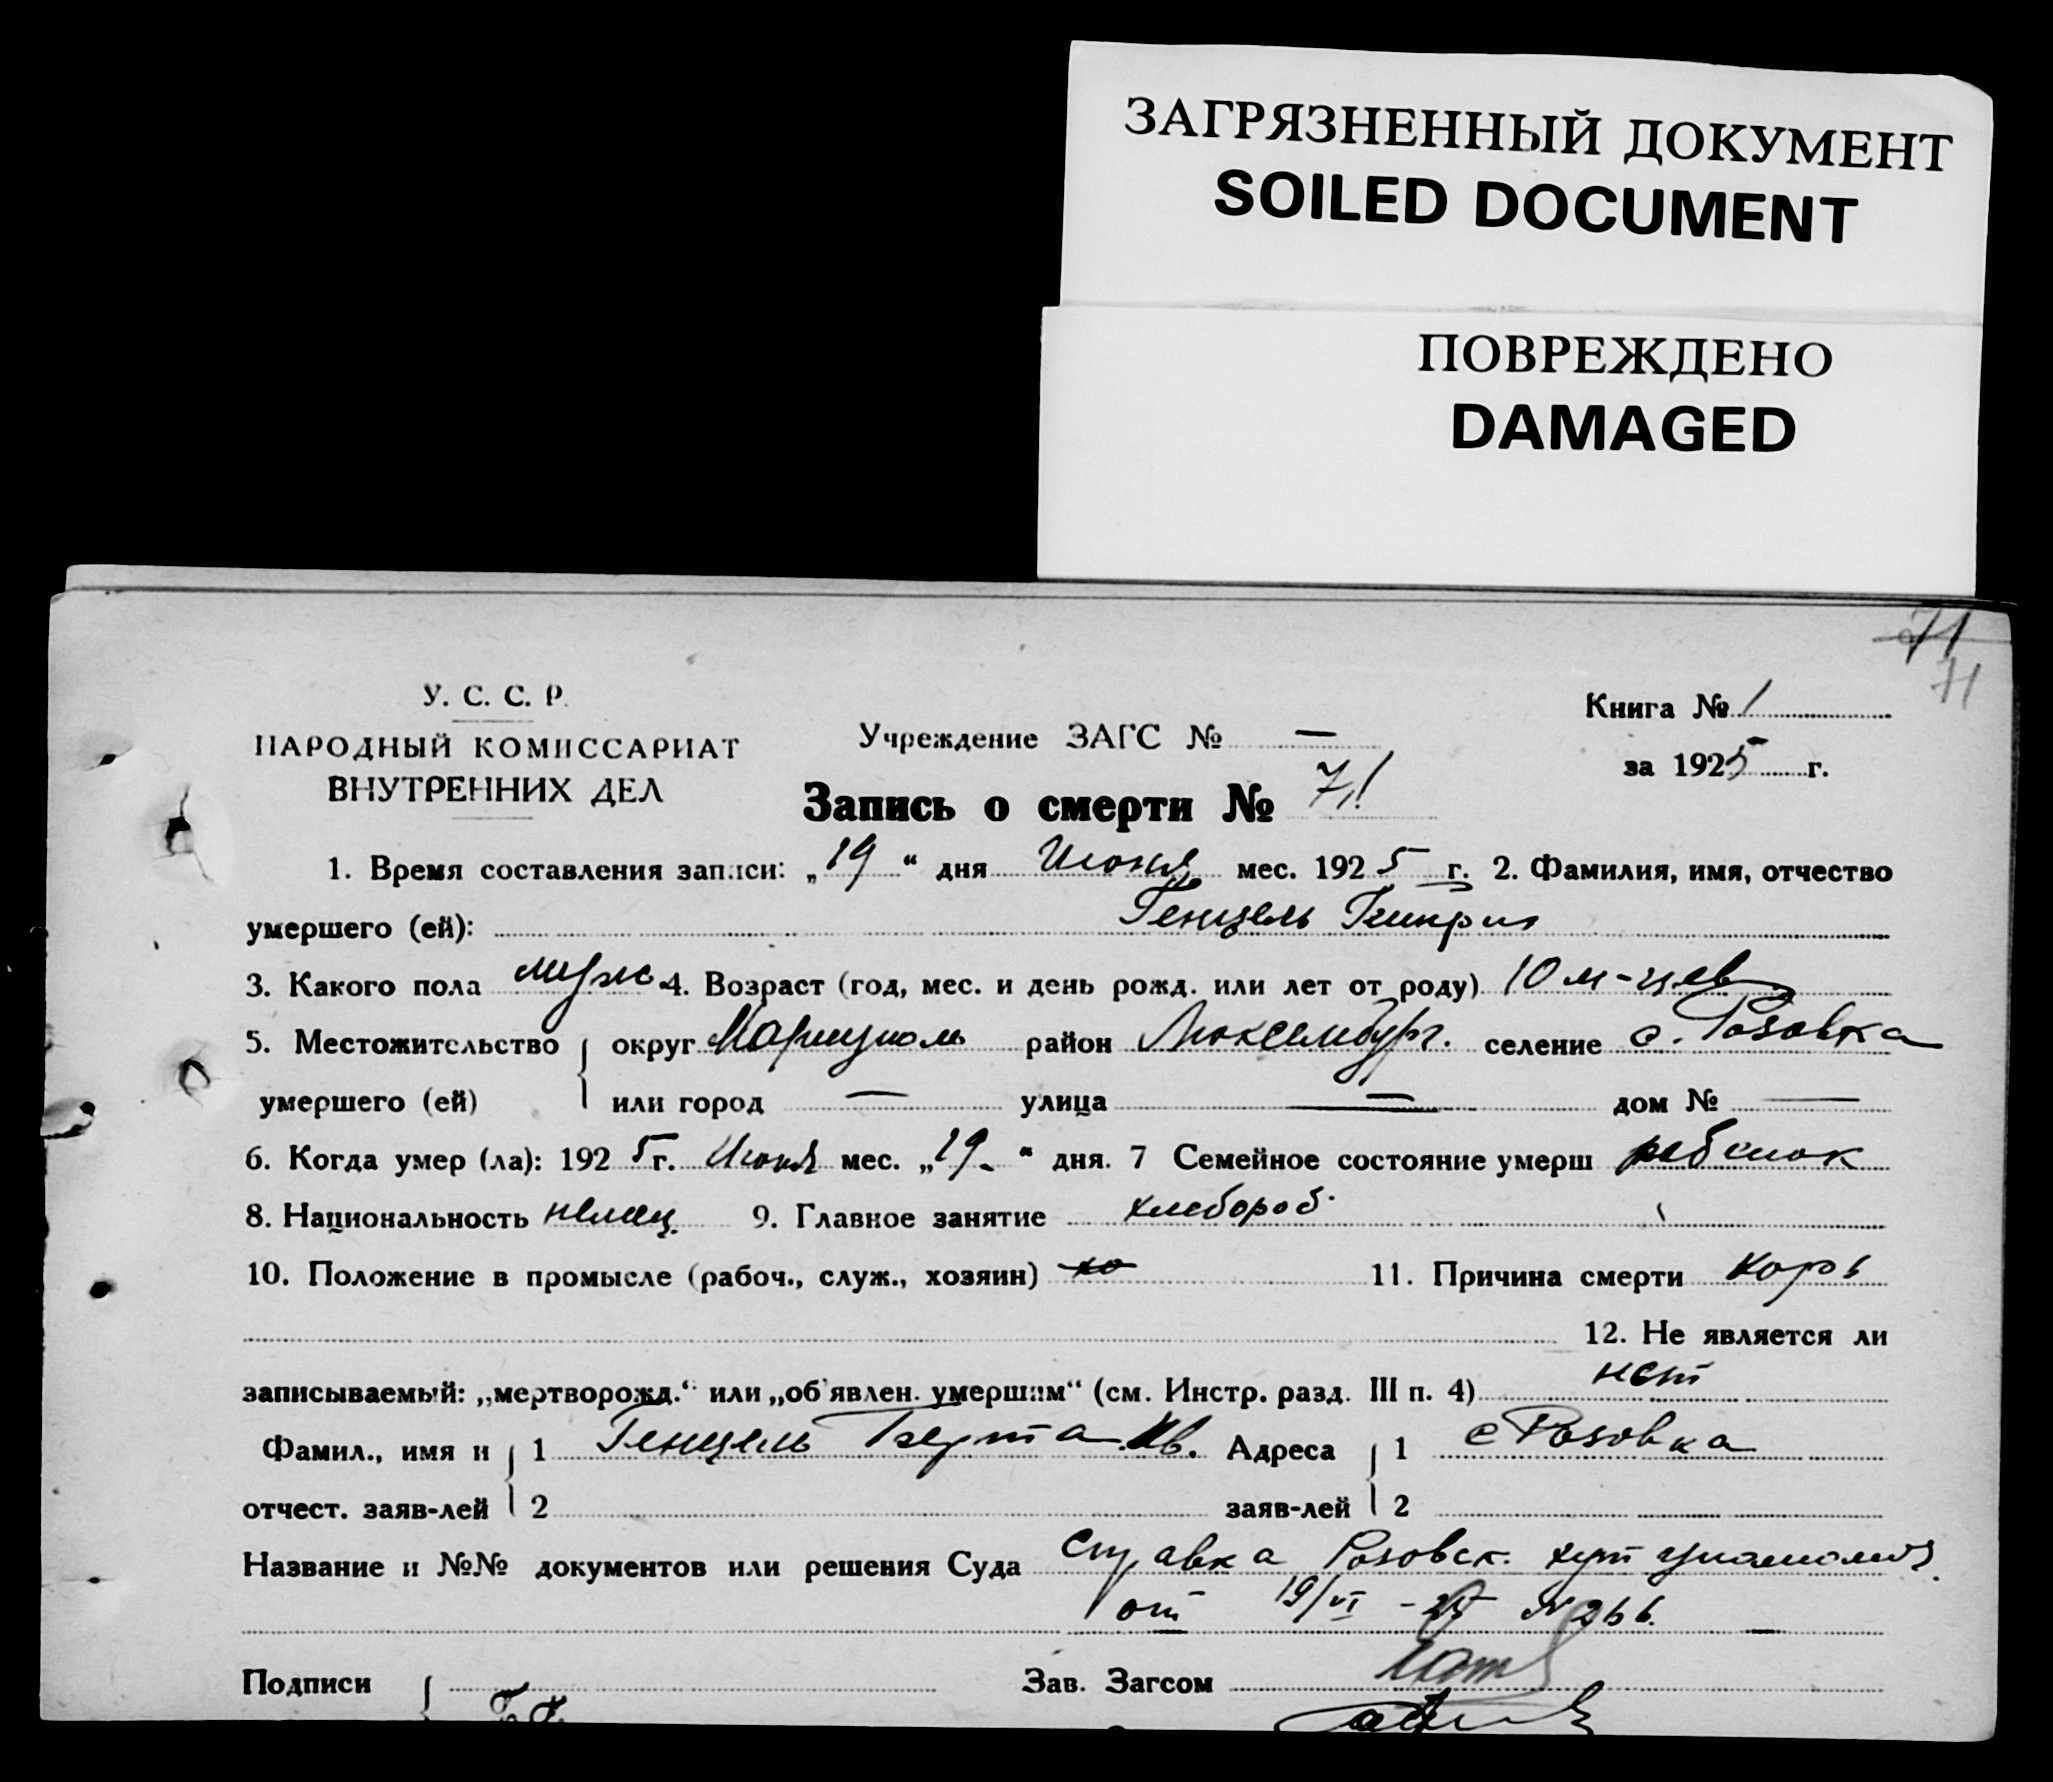 ЗАГРЯЗНЕННЫЙ ДОКУМЕНТ
SOILED DOCUMENT
ПОВРЕЖДЕНО
DAMAGED
71
71
У. С. С. Р.
НАРОДНЫЙ КОМИССАРИАТ
ВНУТРЕННИХ ДЕЛ
Учреждение ЗАГС № —
Книга № 1
за 1925 г.
Запись о смерти № 71
1. Время составления записи: „19“ дня Июня мес. 1925 г. 2. Фамилия, имя, отчество
умершего (ей): Генцель Генрих
3. Какого пола муж. 4. Возраст (год, мес. и день рожд. или лет от роду) 10 м-цев
5. Местожительство округ Мариуполь район Люксембург. селение с. Розовка
умершего (ей) или город — улица — дом № —
6. Когда умер (ла): 1925 г. Июня мес. „19“ дня. 7 Семейное состояние умерш ребенок
8. Национальность немец. 9. Главное занятие хлебороб.
10. Положение в промысле (рабоч., служ., хозяин) хо 11. Причина смерти корь
12. Не является ли
записываемый: „мертворожд.“ или „об'явлен. умершим“ (см. Инстр. разд. III п. 4) нет
Фамил., имя и 1 Генцель Берта Ив. Адреса 1 с Розовка
отчест. заяв-лей 2 заяв-лей 2
Название и №№ документов или решения Суда Справка Розовск.
от 19/VI - 25 № 266.
Подписи Зав. Загсом